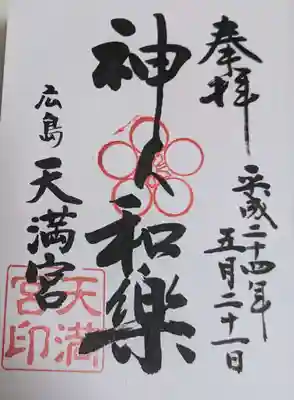 奉拝
平成二十四年
五月二十一日
神人和樂
広島
天満宮
天満
宮印